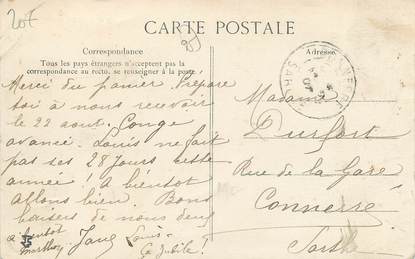 20E
CARTE POSTALE
Correspondance
Tous les pays étrangers n'acceptent pas la
correspondance au recto. se renseigner à la poste.
Adresse
Merci du panier. Prépare
toi à nous recevoir
le 22 aout. Congé
avancé. Louis ne fait
pas ses 28 jours cette
année ! A bientôt
allons bien. Bons
baisers de nous deux
Jane Louis
à bientot
Ça jubile !
Madame
Durfort
Rue de la Gare
Connerré
Sarthe